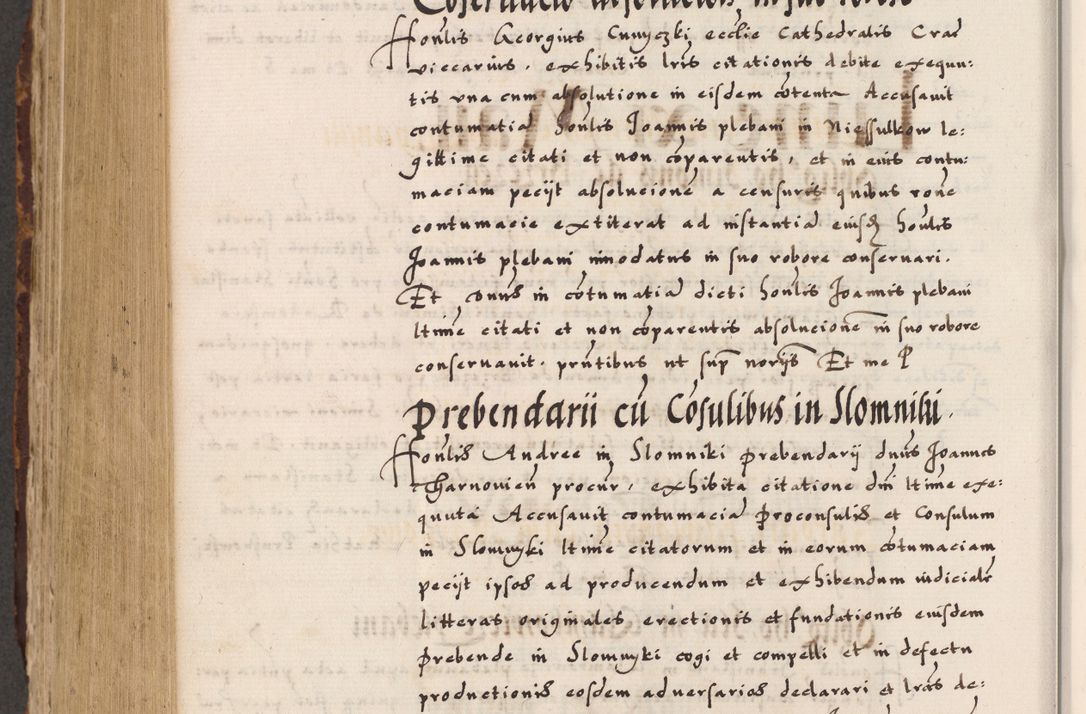 Coservatio absolucionis, in suo robore
Honlis Georgius Cunyczki ecclie Cathedralis Crac
viccarius, exhibitis lris citationis debite exequu:
tis una cum absolutione in eisdem cōtenta Accusauit
contumatiā honlis Joannis plebani in Niessulkow le:
gittime citati et non cōparentis, et in euis contu:
maciam pecijt absolucionē a censuris quibus rone
contumacie extiterat ad instantiā eiusd honlis
Joannis plebani innodatus in suo robore conseruari.
Et onus in cōtumatiā dicti honlis Joannis plebani
ltime citati et non cōparentis absolucionem in suo robore
conseruauit. prntibus ut sup norijs Et me P
Prebendarii cū Cōsulibus in Slomniki.
Honlis Andree in Slomniki prebendarij dnus Joannes
Tharnouien procur, exhibita citatione dni ltime exe:
quuta Accusauit contumaciā proconsulis et Consulum
in Slomnyki ltime citatorum et in eorum cōtumaciam
pecijt ipsos ad producendum et exhibendum iudicialr
litteras originales erectionis et fundationis eiusdem
prebende in Slomnyki cogi et compelli et in defectu
productionis eosdem adversarios declarari et lras de: